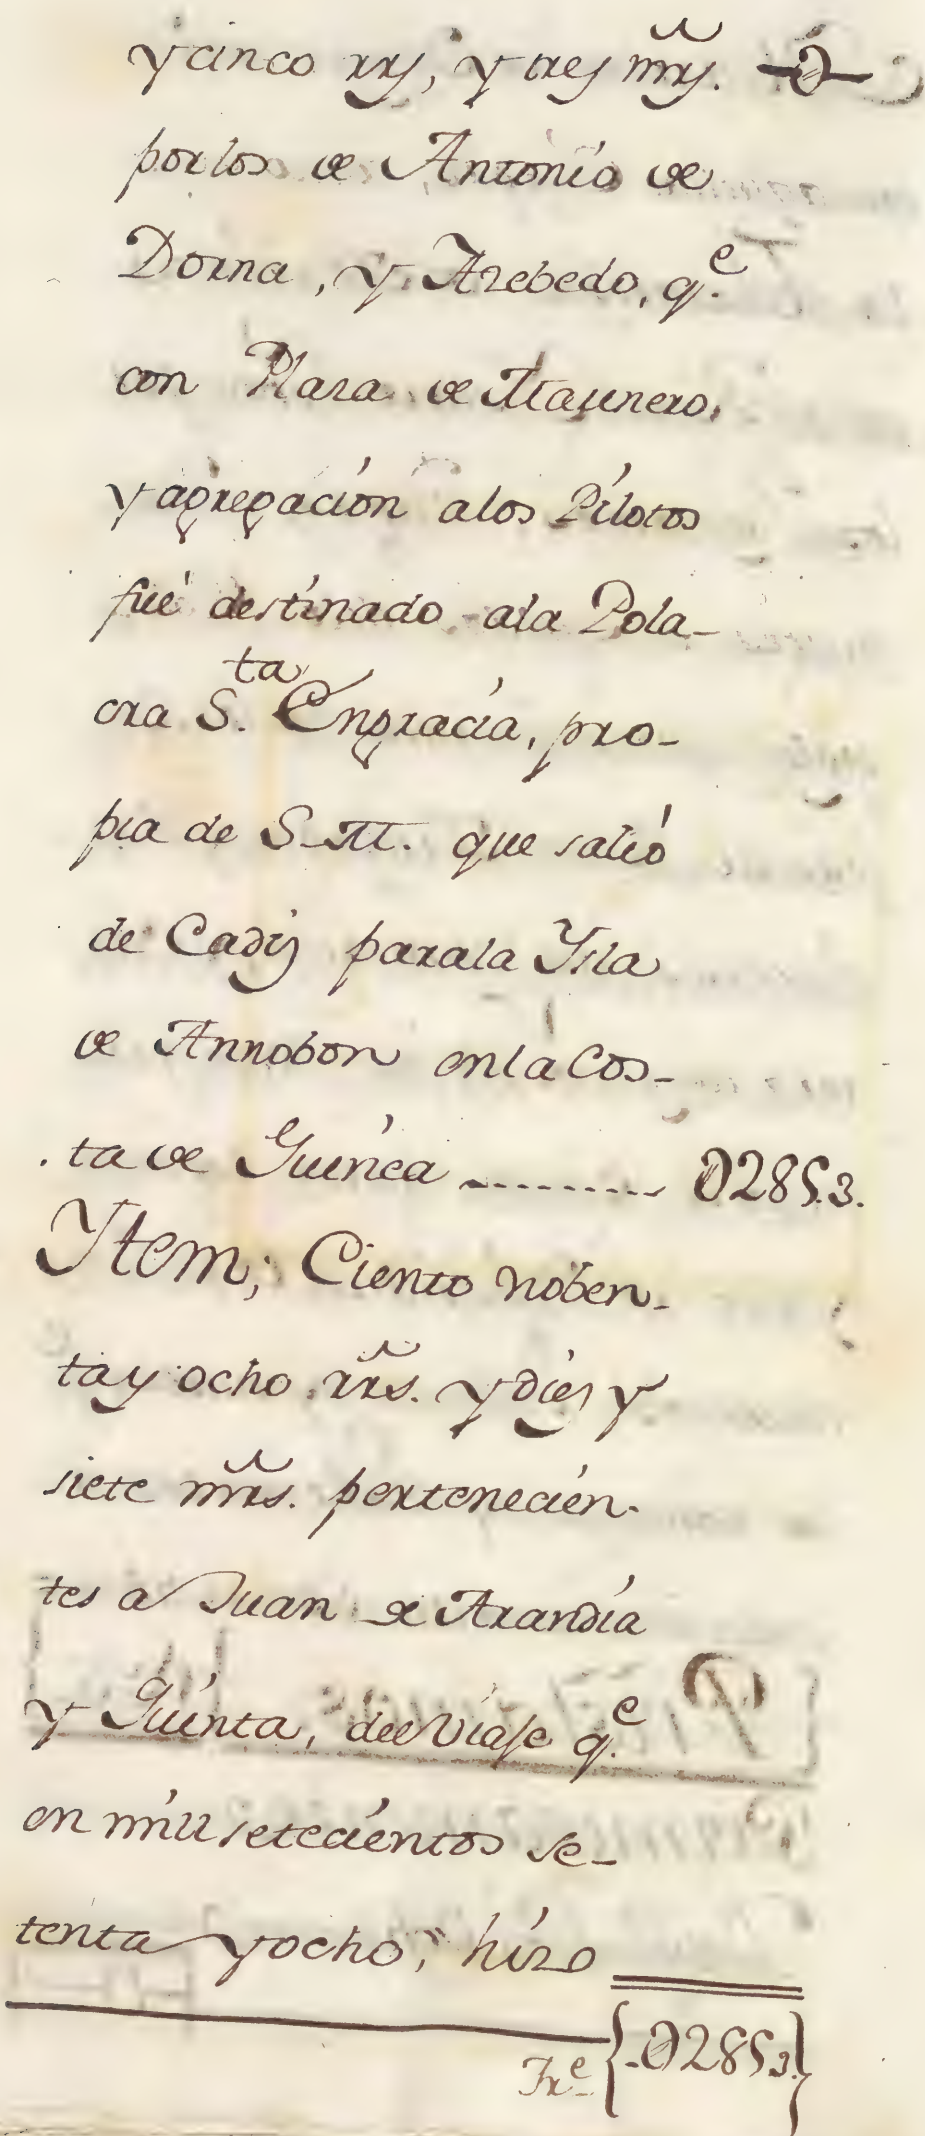 y cinco rrs, y tres mrs.
por los de Antonio de
Dorna, y Azebedo, q.e
con Plaza de Marinero,
y agregación a los Pilotos
fué destinado a la Pola-
cra S.ta Engracia, pro-
pia de S.M. que salió
de Cadiz para la Ysla
de Annobon en la Cos-
ta de Guinea -------- 0285.3.
Ytem; Ciento noben-
ta y ocho rrs. y diez y
siete mrs. pertenecien-
tes a Juan de Arandia
y Guinta, del Viaje q.e
en mill setecientos se-
tenta y ocho, hizo
Fr.e {-0285.3}